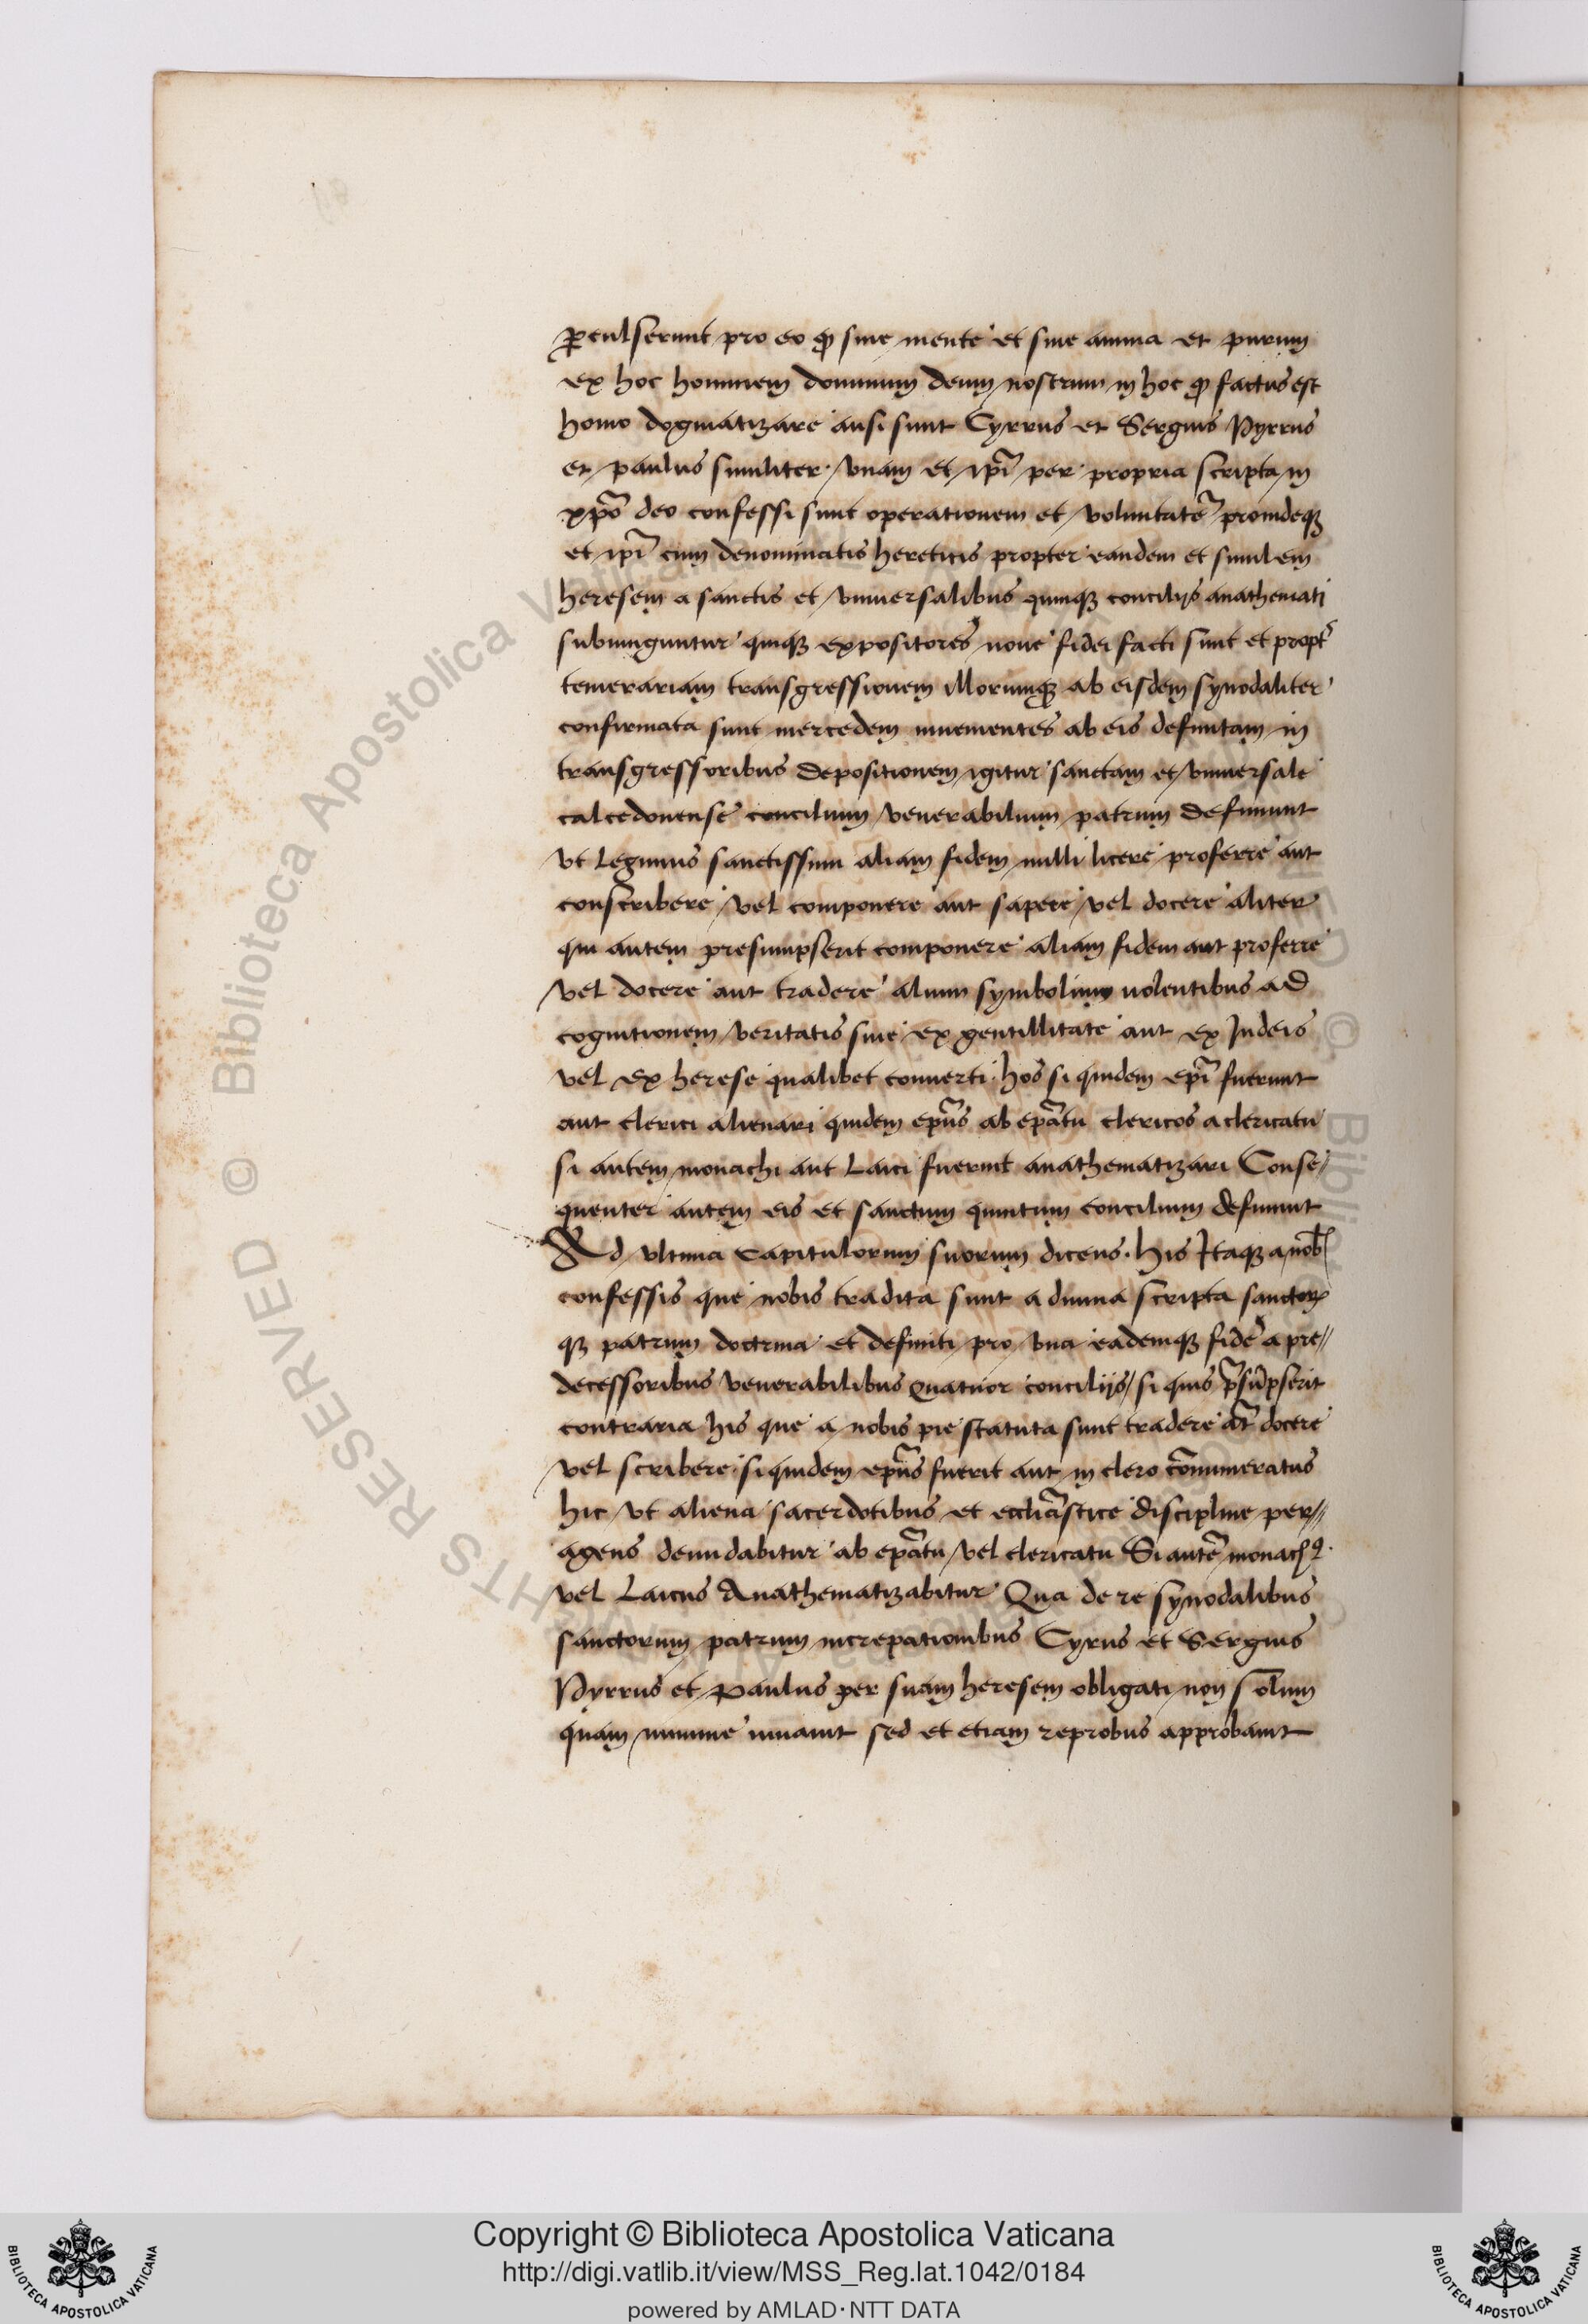 ꝑculserunt pro eo ꝙ sine mente et sine anima et purum
ex hoc hominem dominum deum nostrum in hoc ꝙ factus est
homo dogmatizare ausi sunt Cyrrus et Sergius Pyrrus
et paulus similiter. vnam et ip̃i per propria scripta in
xp̃o deo confessi sunt operationem et voluntatẽ proindeqꝫ
et ip̃i cum denominatis hereticis propter eandem et similem
heresem a sanctis et vniuersalibus quinqꝫ concilijs anathemati
subiunguntur quiqꝫ expositores noue fidei facti sunt et propt̃
temerariam transgressionem illorumqꝫ ab eisdem synodaliter
confirmata sunt mercedem inuenientes ab eis definitam in
transgressoribus depositionem igitur sanctam et vniuersale
calcedonense concilium venerabilium patrum definiunt
vt legimus sanctissimi aliam fidem nulli licere proferre aut
conscribere vel componere aut sapere vel docere aliter
qui autem presumpserit componere aliam fidem aut proferre
vel docere aut tradere alium symbolum uolentibus ad
cognitionem veritatis siue ex gentillitate aut ex Iudeis
vel ex herese qualibet conuerti. hos si quidem ep̃i fuerunt
aut clerici alienari quidem ep̃us ab ep̃atu clericos a clericatu
si autem monachi aut Laici fuerint anathematizari Conse/
quenter autem eis et sanctum quintum concilium definiunt
Ad vltima capitulorum suorum dicens. his Itaqꝫ a nob̃
confessis que nobis tradita sunt a diuina scripta sanctoꝝ
qꝫ patrum doctrina et definiti pro vna eademqꝫ fide a pre//
decessoribus venerabilibus quatuor concilijs/ si quis p̃sũpserit
contraria his que a nobis pie statuta sunt tradere at̃ docere
vel scribere. si quidem ep̃us fuerit aut in clero cõnumeratus
hic vt aliena sacerdotibus et eccliãstice discipline per//
agens denudabitur ab ep̃atu vel clericatu Si autẽ monachꝰ.
vel Laicus Anathematizabitur Qua de re synodalibus
sanctorum patrum increpationibus Cyrus et Sergius
Pyrrus et Paulus per suam heresem obligati non solum
quam minime iuuaint sed et etiam reprobus approbaint
Copyright © Biblioteca Apostolica Vaticana
http://digi.vatlib.it/view/MSS_Reg.lat.1042/0184
powered by AMLAD·NTT DATA
BIBLIOTECA APOSTOLICA VATICANA
BIBLIOTECA APOSTOLICA VATICANA